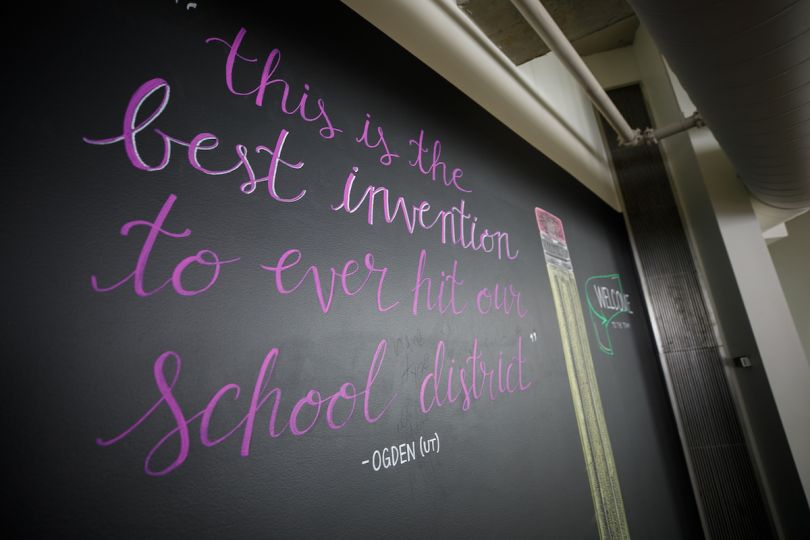 "this is the
best invention
to ever hit our
school district"
-OGDEN (UT)
WELCOME
TO THE